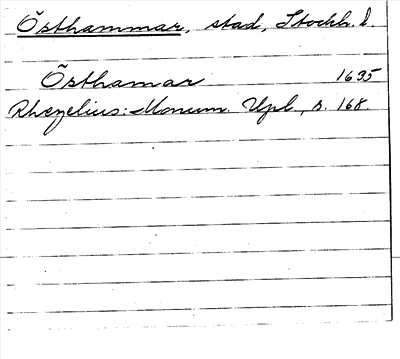 Östhammar, stad, Stockh. l
Östhamar 1635
Rhezelius: Monum. Upl., s. 168.